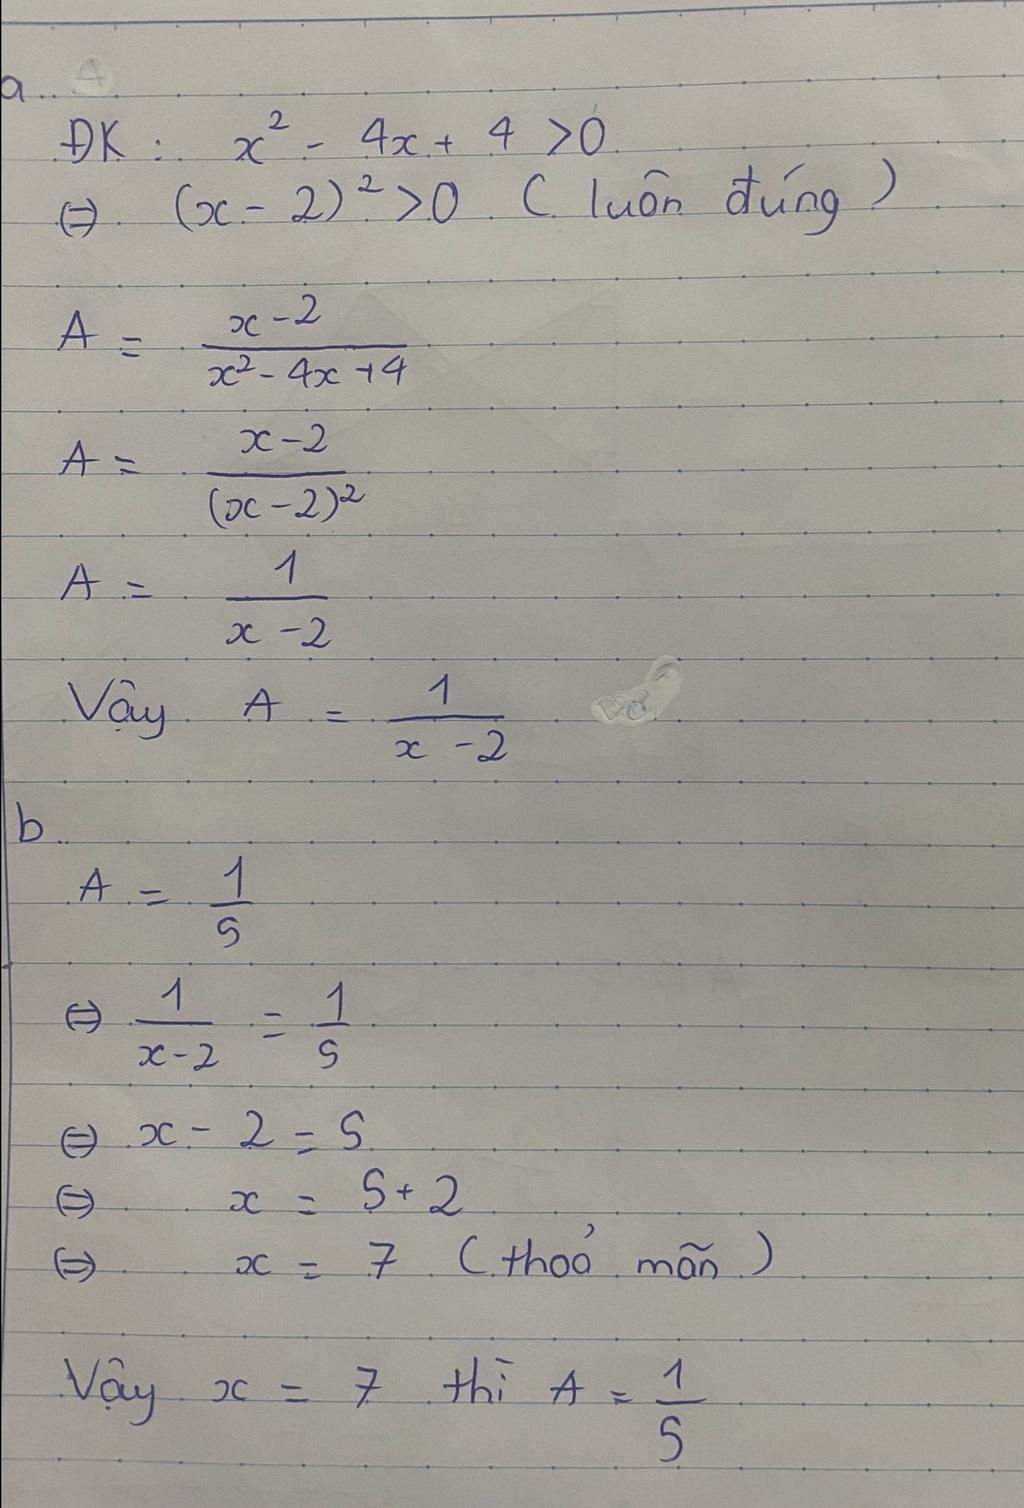 a.
ĐK: x² - 4x + 4 > 0
⇔ (x - 2)² > 0 (luôn đúng)
A = \frac{x-2}{x²-4x+4}
A = \frac{x-2}{(x-2)²}
A = \frac{1}{x-2}
Vậy A = \frac{1}{x-2}
b.
A = \frac{1}{5}
⇔ \frac{1}{x-2} = \frac{1}{5}
⇔ x - 2 = 5
⇔ x = 5 + 2
⇔ x = 7 (thoả mãn)
Vậy x = 7 thì A = \frac{1}{5}